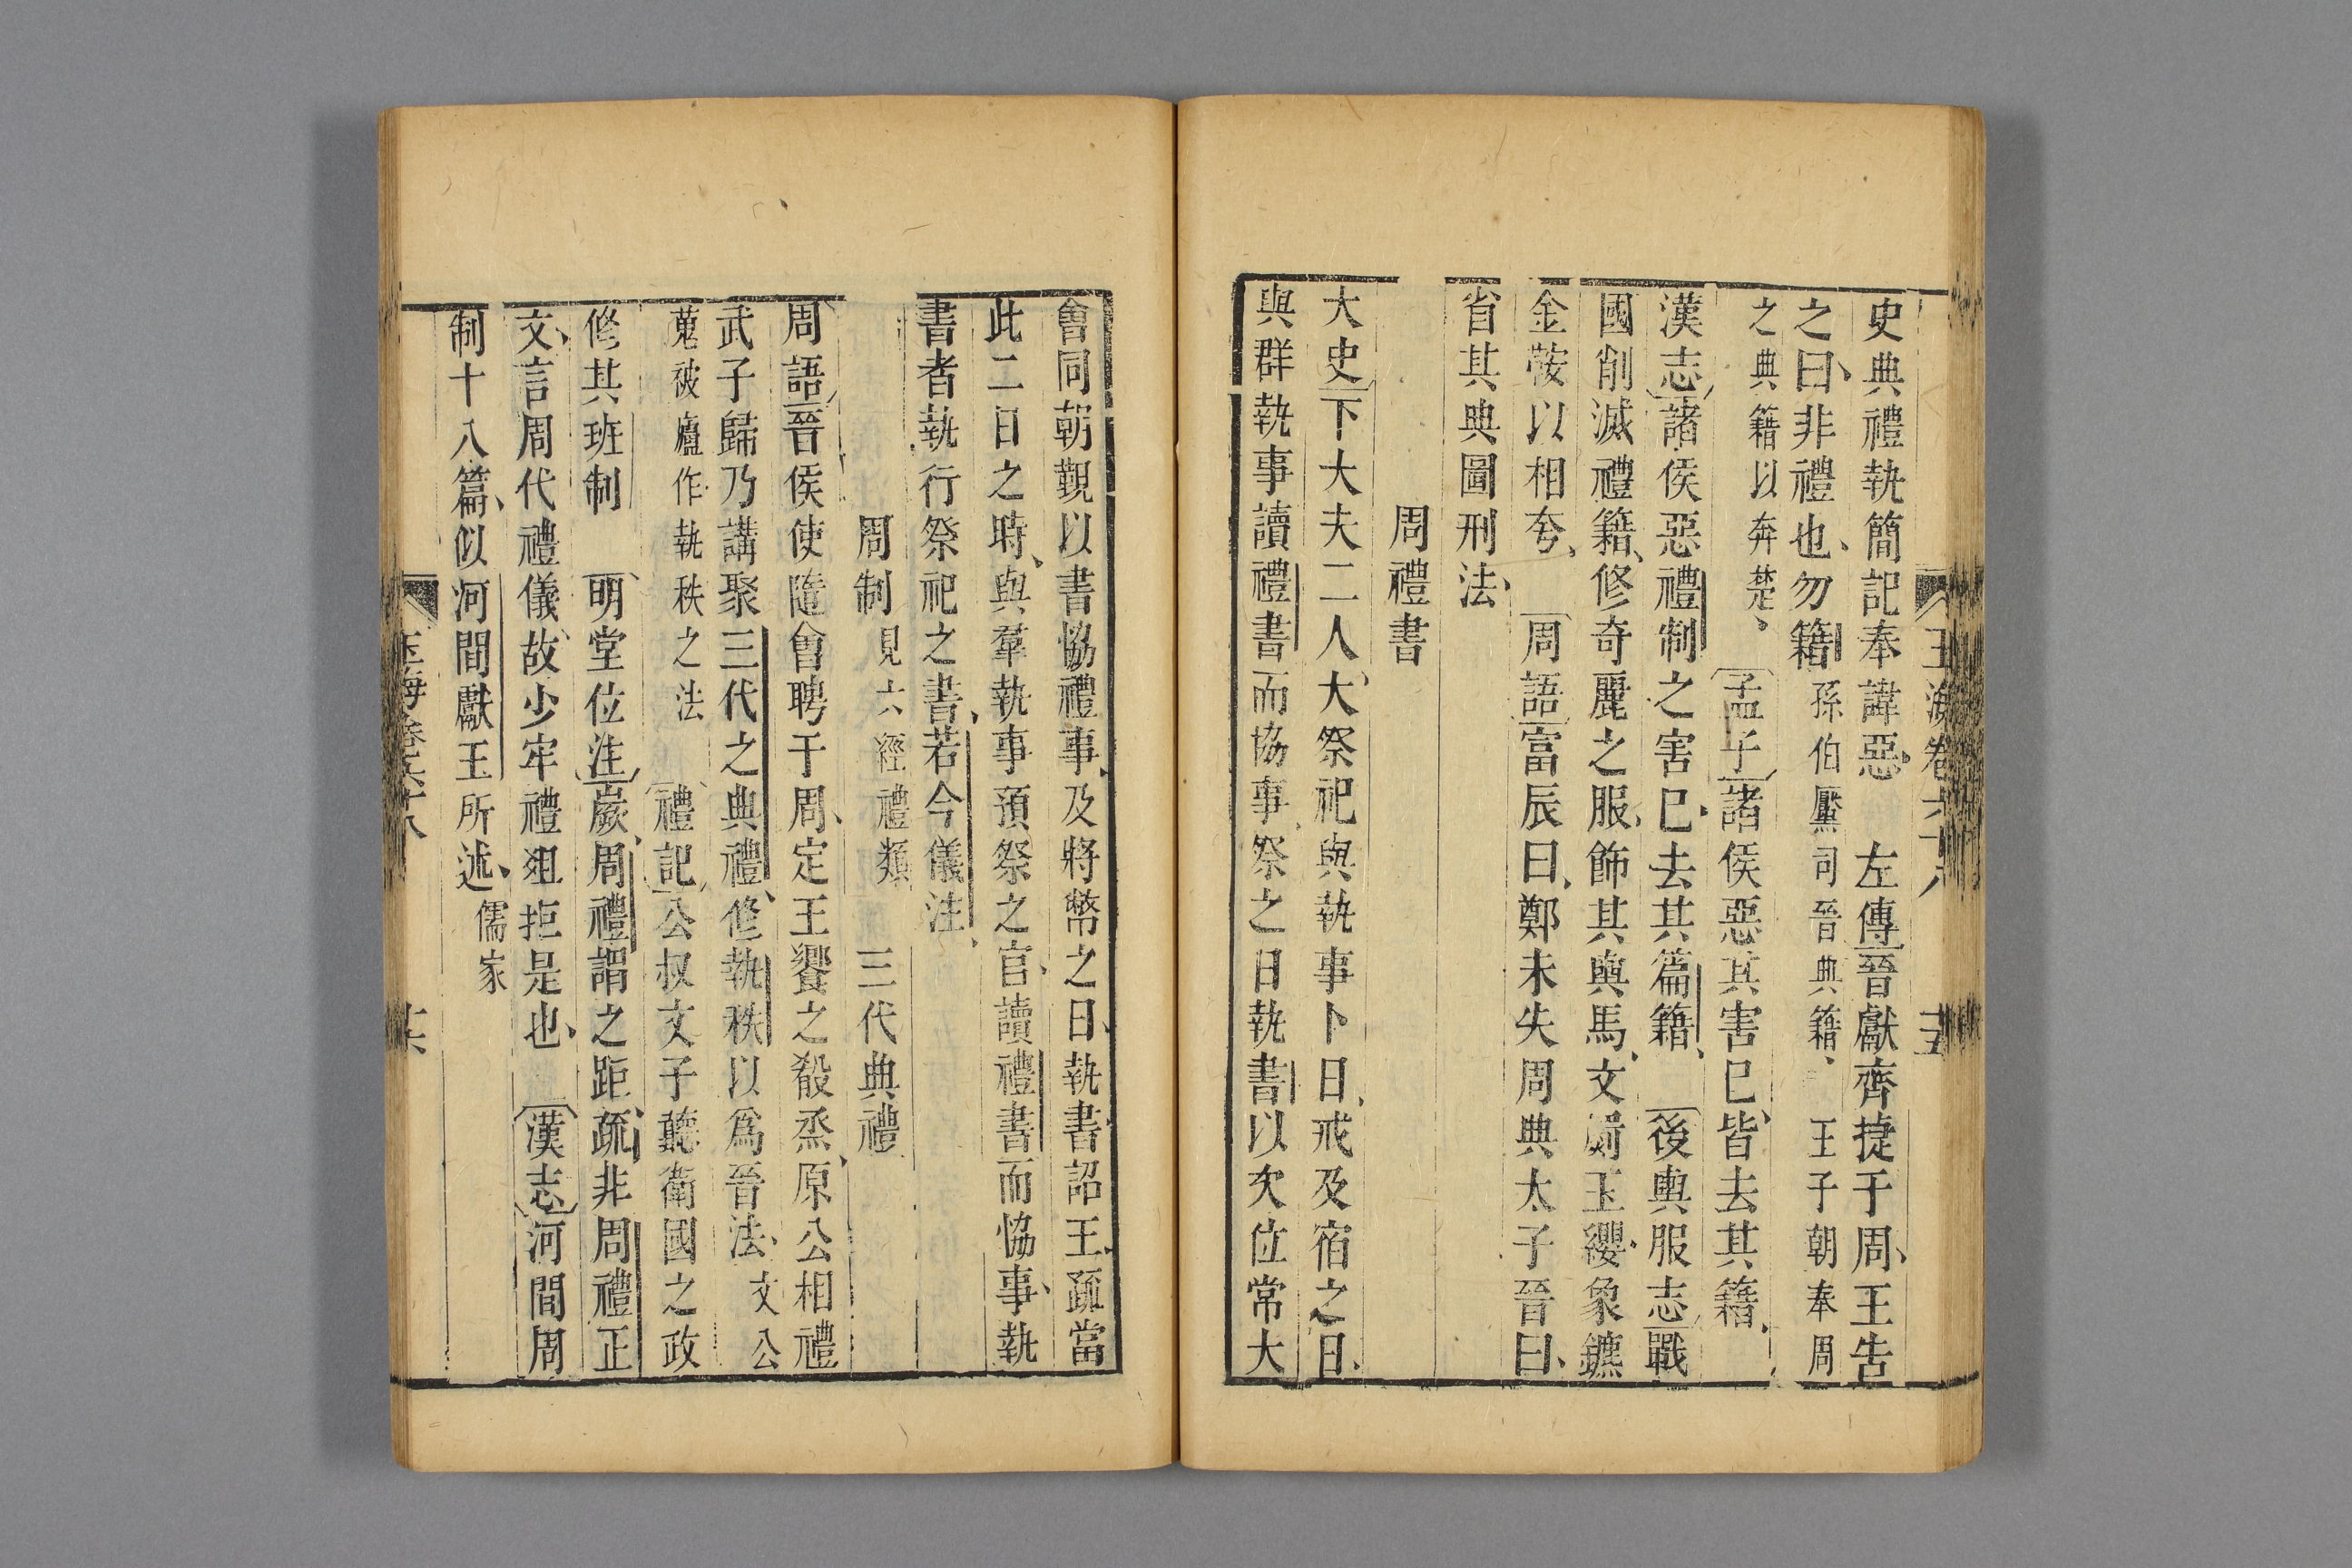 玉海卷六十八 十五
史典禮執簡記奉諱惡 左傳晉獻齊捷于周王告
之曰非禮也勿籍孫伯黶司晉典籍 王子朝奉周
之典籍以奔楚 孟子諸侯惡其害已皆去其籍
漢志諸侯惡禮制之害已去其篇籍 後輿服志戰
國削滅禮籍修奇麗之服飾其輿馬文罽玉纓象鑣
金鞍以相夸 周語富辰曰鄭未失周典太子晉曰
省其典圖刑法
周禮書
大史下大夫二人大祭祀與執事卜日戒及宿之日
與群執事讀禮書而協事祭之日執書以次位常大
會同朝覲以書協禮事及將幣之日執書詔王疏當
此二日之時與羣執事預祭之官讀禮書而恊事執
書者執行祭祀之書若今儀注
周制見六經禮類 三代典禮
周語晉侯使隨會聘于周定王饗之殽烝原公相禮
武子歸乃講聚三代之典禮修執秩以爲晉法文公
蒐被廬作執秩之法 禮記公叔文子聽衛國之政
修其班制 明堂位注嶡周禮謂之距疏非周禮正
文言周代禮儀故少牢禮俎拒是也 漢志河間周
制十八篇似河間獻王所述儒家
玉海卷六十八 十六